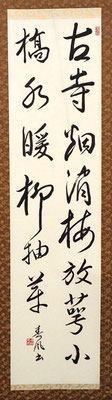 古寺烟消梅放萼小
橋水暖柳抽芽